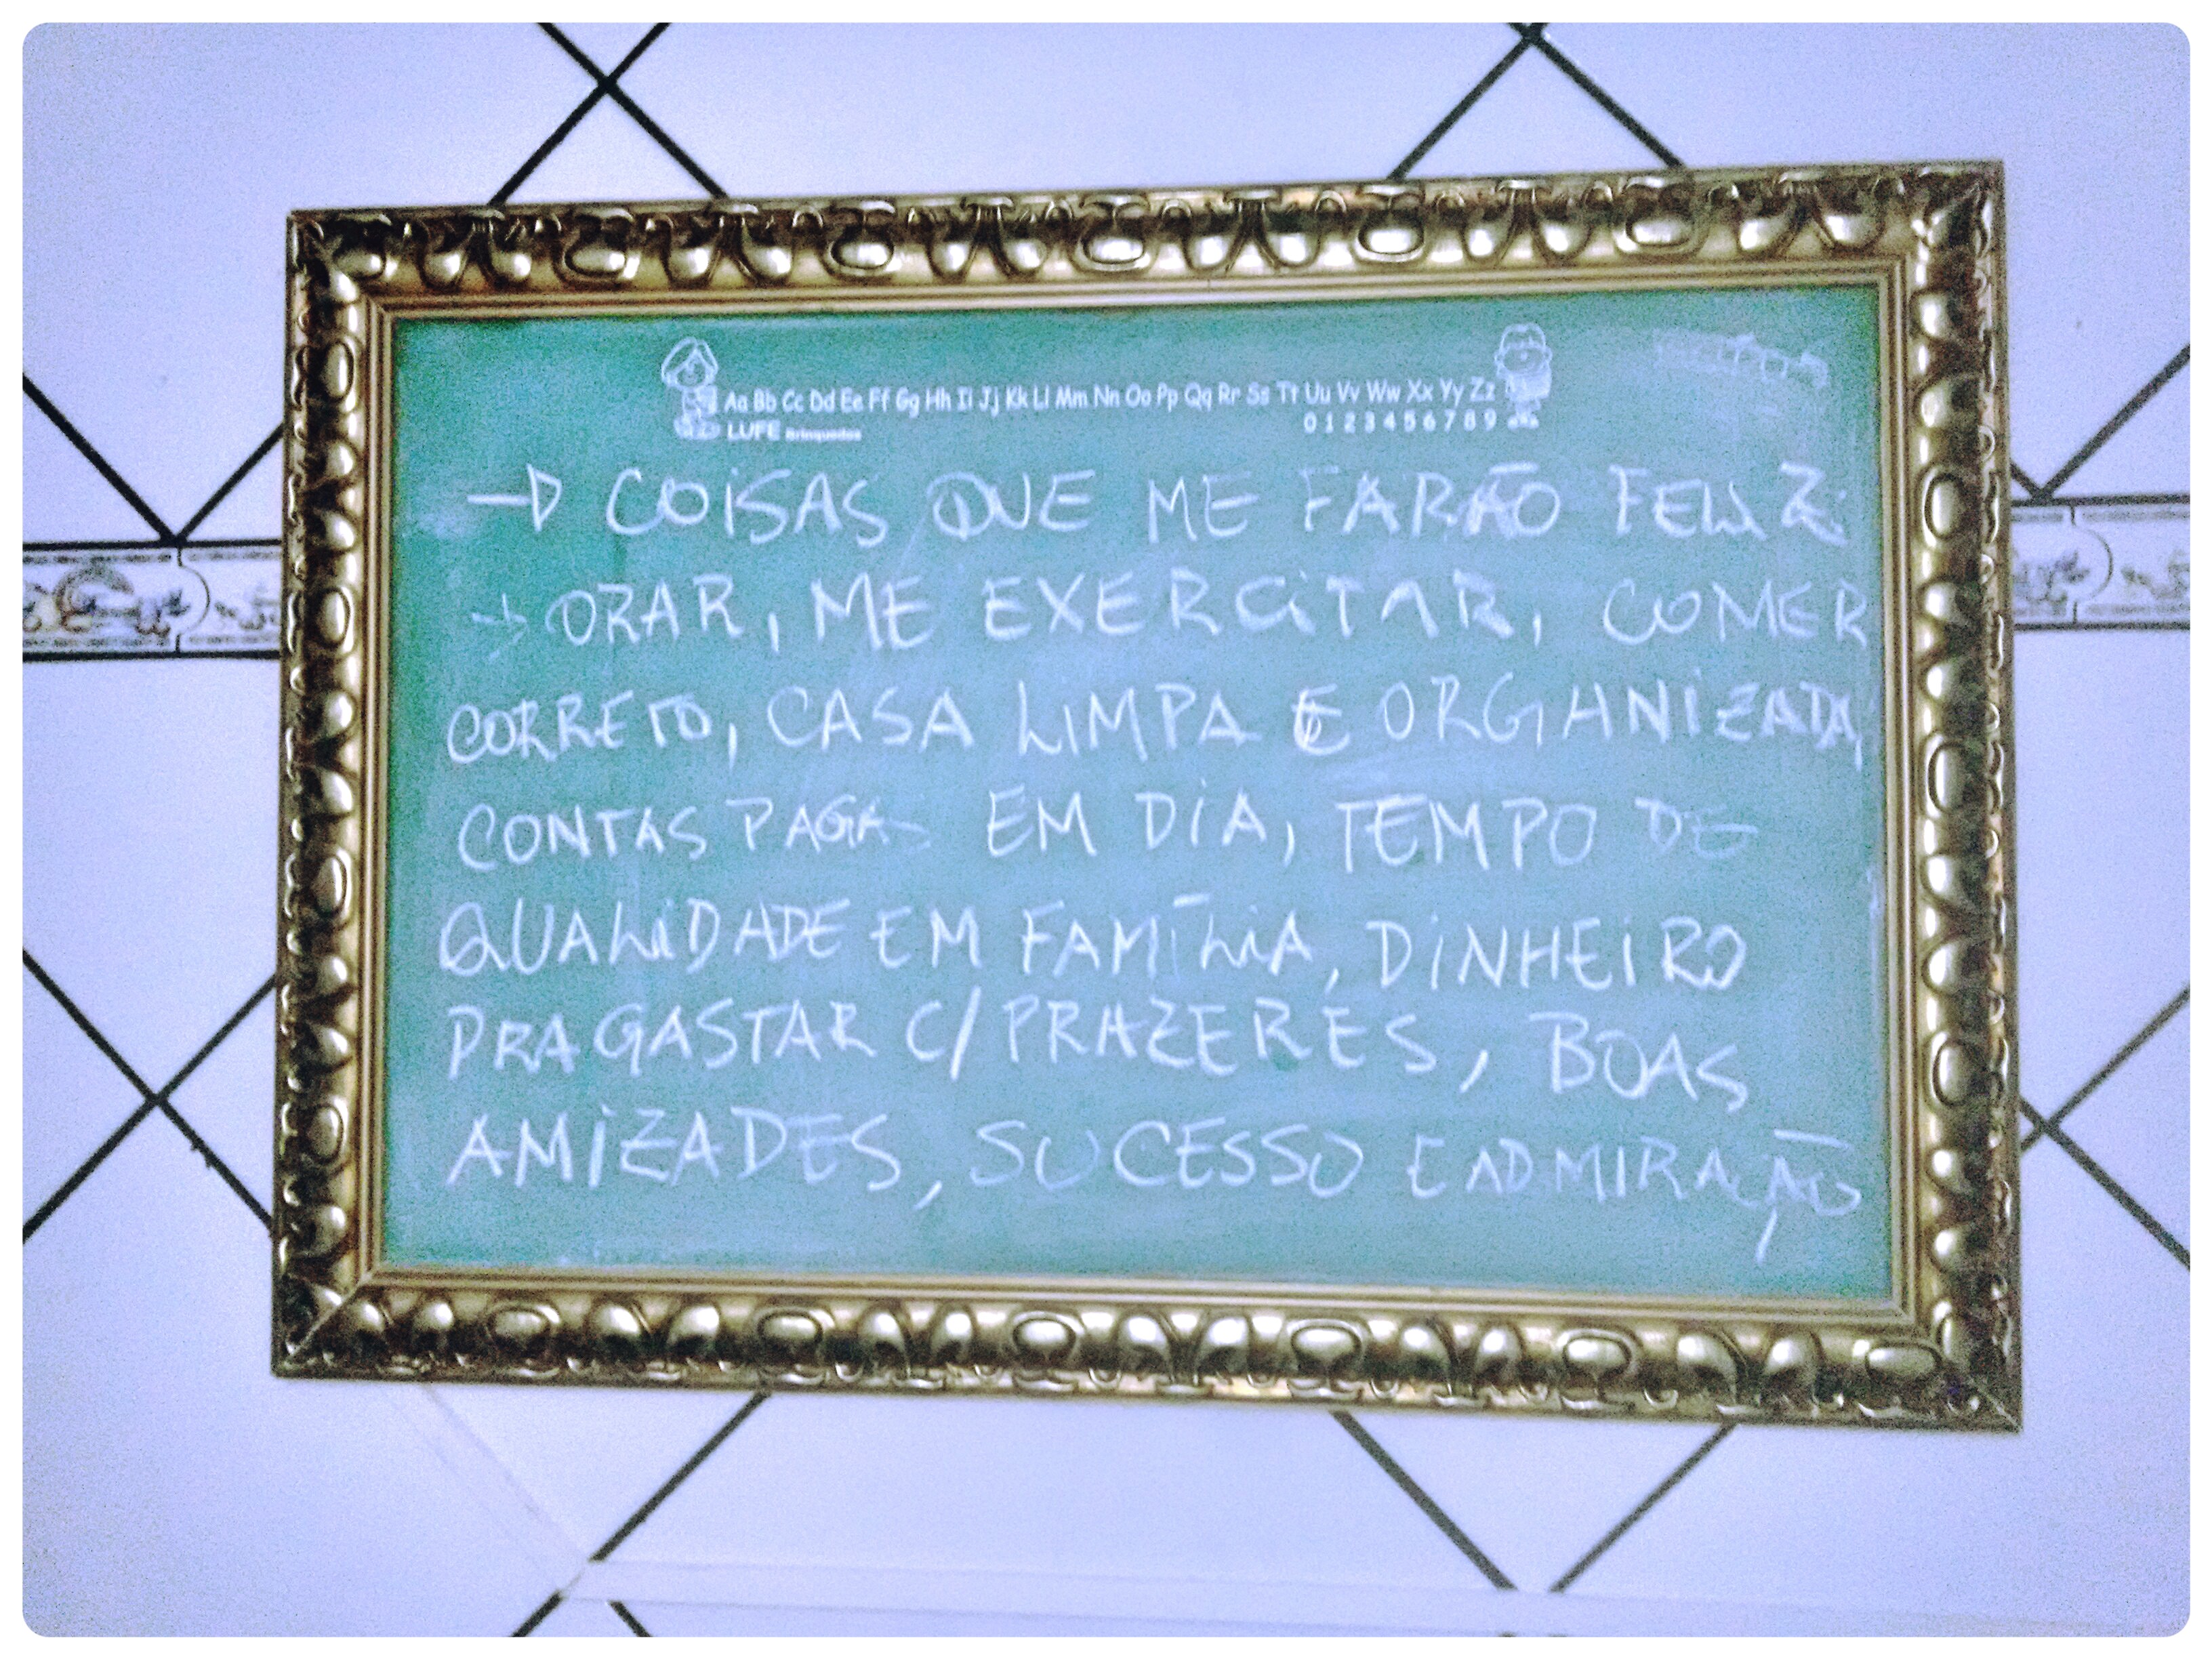 Aa Bb Cc Dd Ee Ff Gg Hh Ii Jj Kk Ll Mm Nn Oo Pp Qq Rr Ss Tt Uu Vv Ww Xx Yy Zz
LUFE Brinquedos 0 1 2 3 4 5 6 7 8 9
→ COISAS QUE ME FARÃO FELIZ
→ ORAR, ME EXERCITAR, COMER
CORRETO, CASA LIMPA E ORGANIZADA,
CONTAS PAGAS EM DIA, TEMPO DE
QUALIDADE EM FAMÍLIA, DINHEIRO
PRA GASTAR C/ PRAZERES, BOAS
AMIZADES, SUCESSO E ADMIRAÇÃO